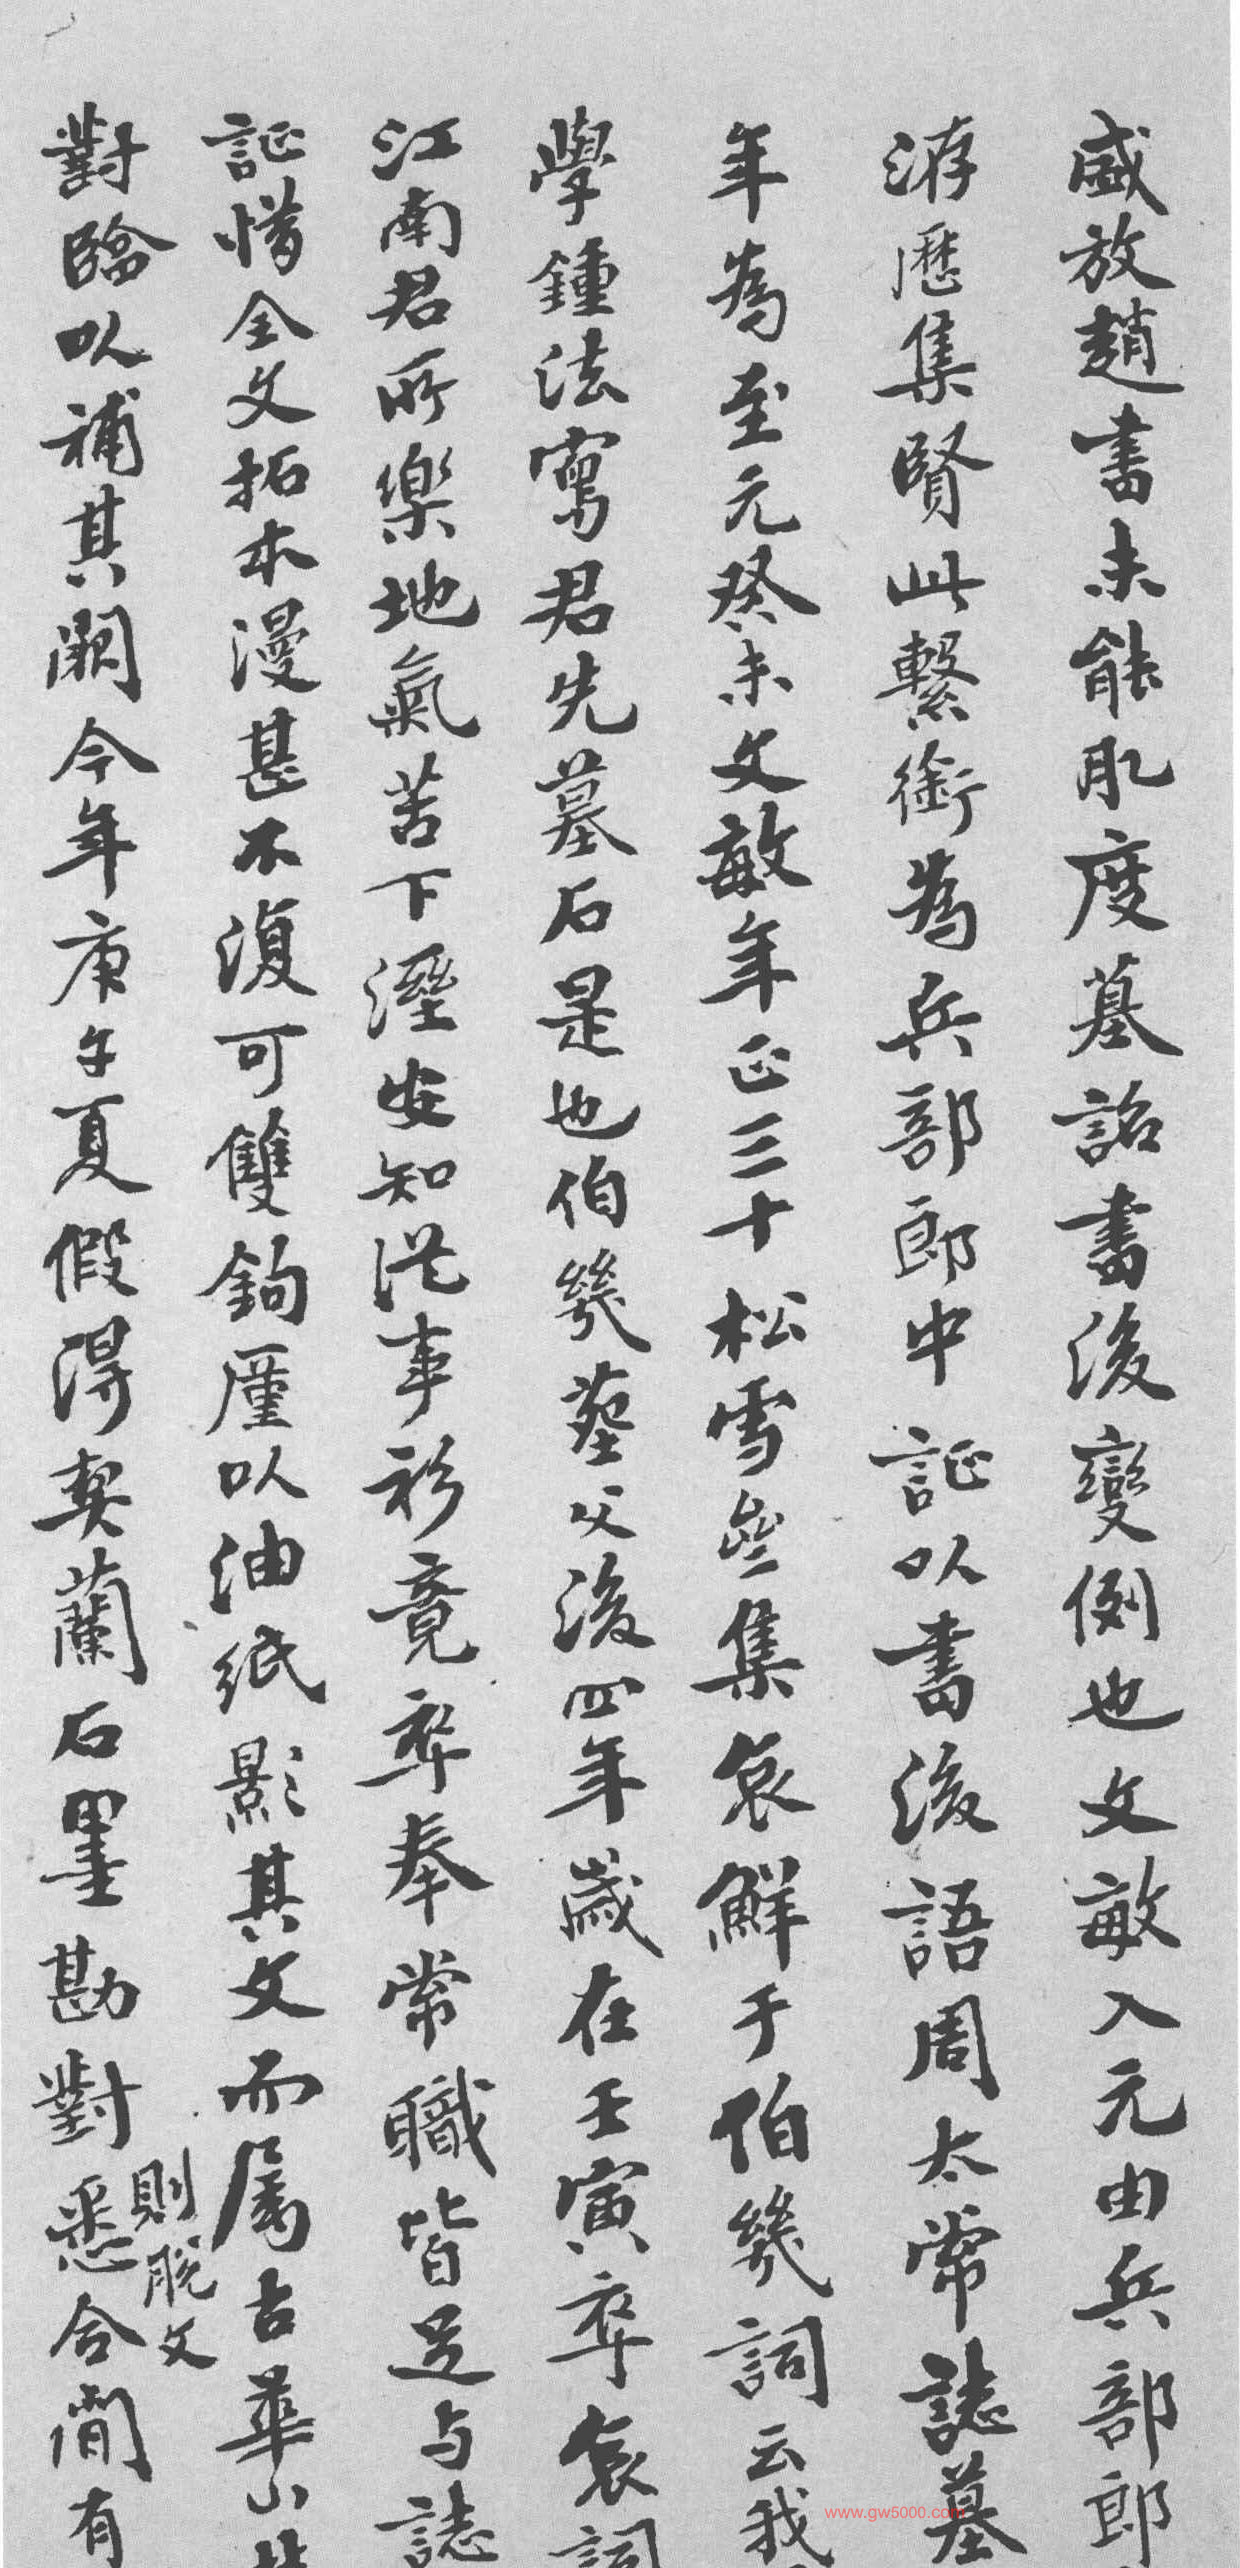 盛放趙書未能肊度墓誌書後變例也文敏入元由兵部郎
游歷集賢此繫銜為兵部郎中証以書後語周太常誌墓
年為至元癸未文敏年正三十松雪齋集哀鮮于伯幾詞云我
學鍾法寫君先墓石是也伯幾葬父後四年歲在壬寅卒哀詞
江南君所樂地氣苦下溼安知從事衫竟卒奉常職皆足与誌
証惜全文拓本漫甚不復可雙鉤厪以油紙影其文而属古華山
對臨以補其闕今年庚午夏假得契蘭石墨勘對悉合閒有
則脫文
www.gw5000.com